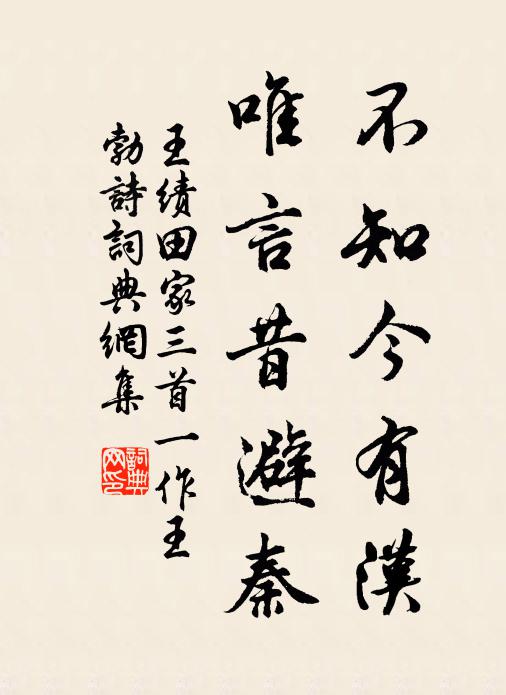 不知今有漢
唯言昔避秦
王績田家三首一作王
勃詩詞典網集
詞典網印